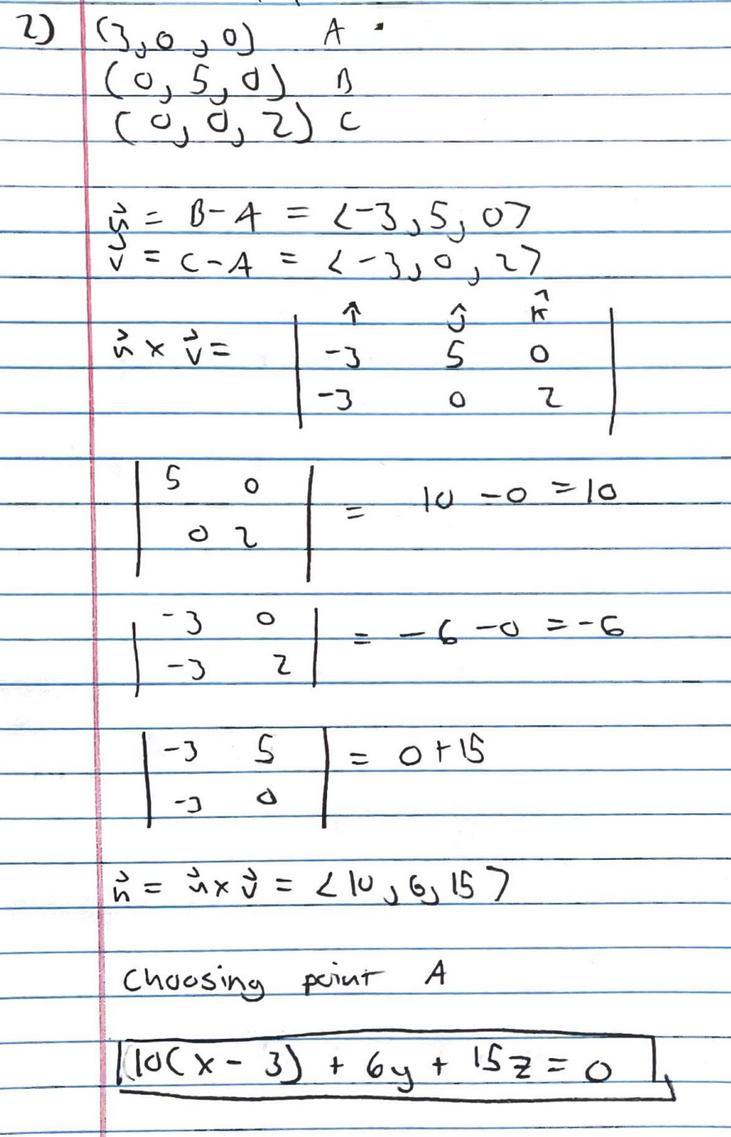 2) (3,0,0) A
(0,5,0) B
(0,0,2) C
u⃗ = B-A = <-3,5,0>
v⃗ = C-A = <-3,0,2>
î ĵ k̂
u⃗ × v⃗ = | -3 5 0 |
-3 0 2
| 5 0 | = 10 - 0 = 10
0 2
| -3 0 | = -6 - 0 = -6
-3 2
| -3 5 | = 0 + 15
-3 0
n⃗ = u⃗ × v⃗ = <10,6,15>
Choosing point A
10(x - 3) + 6y + 15z = 0